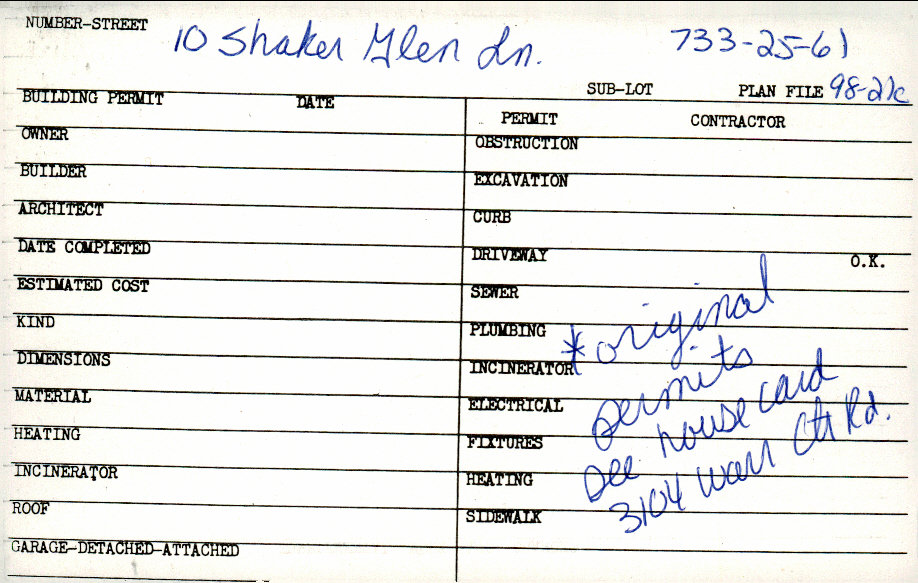 NUMBER-STREET
10 Shaker Glen Ln.
733-25-61
SUB-LOT
PLAN FILE 98-21c
BUILDING PERMIT
DATE
OWNER
BUILDER
ARCHITECT
DATE COMPLETED
ESTIMATED COST
KIND
DIMENSIONS
MATERIAL
HEATING
INCINERATOR
ROOF
GARAGE-DETACHED-ATTACHED
PERMIT
CONTRACTOR
OBSTRUCTION
EXCAVATION
CURB
DRIVEWAY
O.K.
SEWER
PLUMBING
INCINERATOR
ELECTRICAL
FIXTURES
HEATING
SIDEWALK
*original
permits
see house card
3104 Warr Ctr Rd.